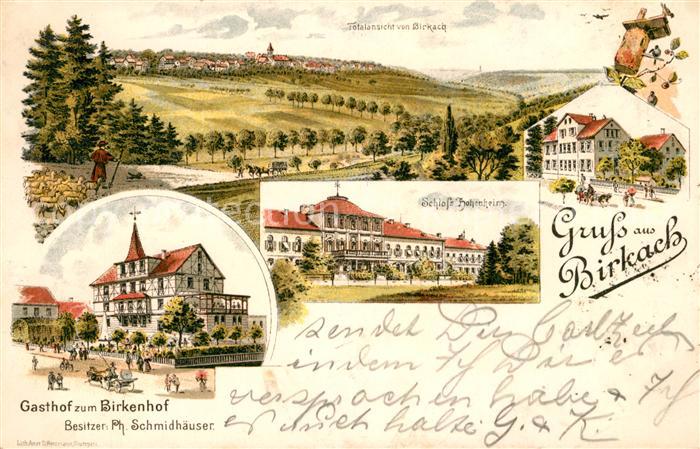 Totalansicht von Birkach
Schloß Hohenheim
Gruß aus
Birkach
sendet Dir
indem Ich Dir e
versprochen habe & Ich
er Auch halte G. & K.
Gasthof zum Birkenhof
Besitzer: Ph. Schmidhäuser.